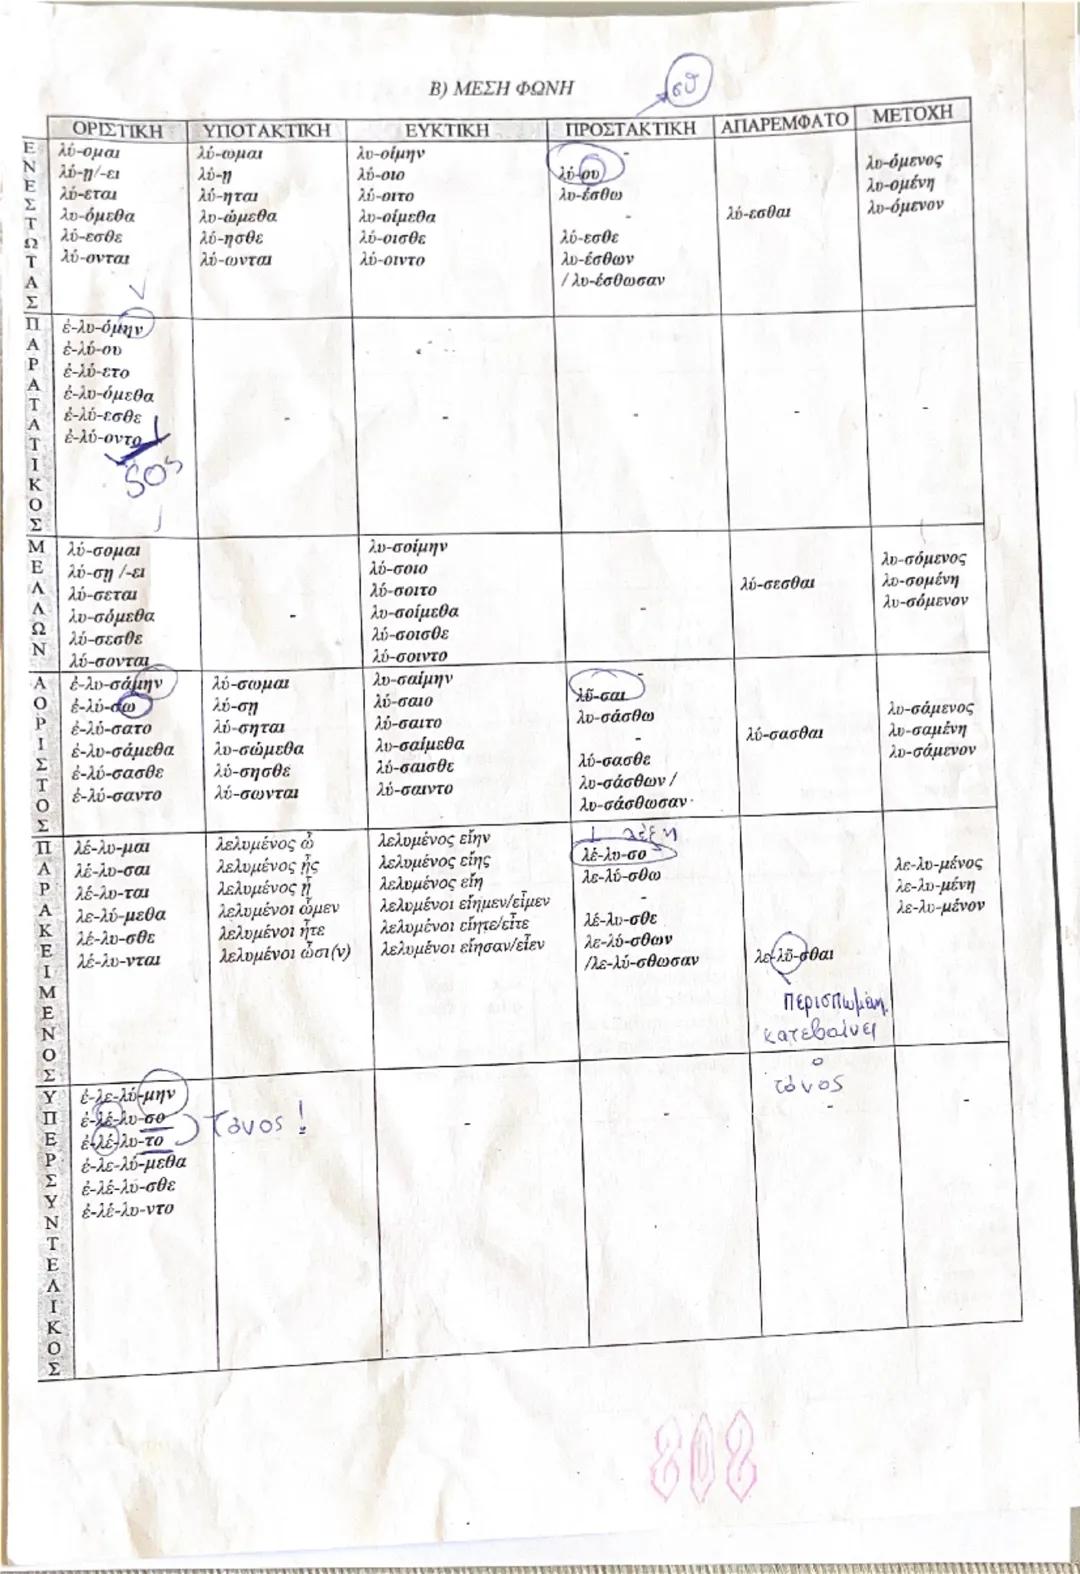 Β) ΜΕΣΗ ΦΩΝΗ
σθ
ΟΡΙΣΤΙΚΗ ΥΠΟΤΑΚΤΙΚΗ ΕΥΚΤΙΚΗ ΠΡΟΣΤΑΚΤΙΚΗ ΑΠΑΡΕΜΦΑΤΟ ΜΕΤΟΧΗ
ΕΝΕΣΤΩΤΑΣ
λύ-ομαι
λύ-ῃ/-ει
λύ-εται
λυ-όμεθα
λύ-εσθε
λύ-ονται
λύ-ωμαι
λύ-ῃ
λύ-ηται
λυ-ώμεθα
λύ-ησθε
λύ-ωνται
λυ-οίμην
λύ-οιο
λύ-οιτο
λυ-οίμεθα
λύ-οισθε
λύ-οιντο
-
λύ-ου
λυ-έσθω
-
λύ-εσθε
λυ-έσθων
/ λυ-έσθωσαν
λύ-εσθαι
λυ-όμενος
λυ-ομένη
λυ-όμενον
ΠΑΡΑΤΑΤΙΚΟΣ
ἐ-λυ-όμην
ἐ-λύ-ου
ἐ-λύ-ετο
ἐ-λυ-όμεθα
ἐ-λύ-εσθε
ἐ-λύ-οντο
SOS
- - - - -
ΜΕΛΛΩΝ
λύ-σομαι
λύ-σῃ /-ει
λύ-σεται
λυ-σόμεθα
λύ-σεσθε
λύ-σονται
-
λυ-σοίμην
λύ-σοιο
λύ-σοιτο
λυ-σοίμεθα
λύ-σοισθε
λύ-σοιντο
-
λύ-σεσθαι
λυ-σόμενος
λυ-σομένη
λυ-σόμενον
ΑΟΡΙΣΤΟΣ
ἐ-λυ-σάμην
ἐ-λύ-σω
ἐ-λύ-σατο
ἐ-λυ-σάμεθα
ἐ-λύ-σασθε
ἐ-λύ-σαντο
λύ-σωμαι
λύ-σῃ
λύ-σηται
λυ-σώμεθα
λύ-σησθε
λύ-σωνται
λυ-σαίμην
λύ-σαιο
λύ-σαιτο
λυ-σαίμεθα
λύ-σαισθε
λύ-σαιντο
λῦ-σαι
λυ-σάσθω
-
λύ-σασθε
λυ-σάσθων /
λυ-σάσθωσαν
λύ-σασθαι
λυ-σάμενος
λυ-σαμένη
λυ-σάμενον
ΠΑΡΑΚΕΙΜΕΝΟΣ
λέ-λυ-μαι
λέ-λυ-σαι
λέ-λυ-ται
λε-λύ-μεθα
λέ-λυ-σθε
λέ-λυ-νται
λελυμένος ὦ
λελυμένος ᾖς
λελυμένος ᾖ
λελυμένοι ὦμεν
λελυμένοι ἦτε
λελυμένοι ὦσι(ν)
λελυμένος εἴην
λελυμένος εἴης
λελυμένος εἴη
λελυμένοι εἴημεν/εἶμεν
λελυμένοι εἴητε/εἶτε
λελυμένοι εἴησαν/εἶεν
1 λέξη
λέ-λυ-σο
λε-λύ-σθω
-
λέ-λυ-σθε
λε-λύ-σθων
/λε-λύ-σθωσαν
λε-λῦ-σθαι
περισπωμένη
κατεβαίνει
ο
τόνος
λε-λυ-μένος
λε-λυ-μένη
λε-λυ-μένον
ΥΠΕΡΣΥΝΤΕΛΙΚΟΣ
ἐ-λε-λύ-μην
ἐ-λέ-λυ-σο
ἐ-λέ-λυ-το
ἐ-λε-λύ-μεθα
ἐ-λέ-λυ-σθε
ἐ-λέ-λυ-ντο
τόνος !
- - - - -
SOS